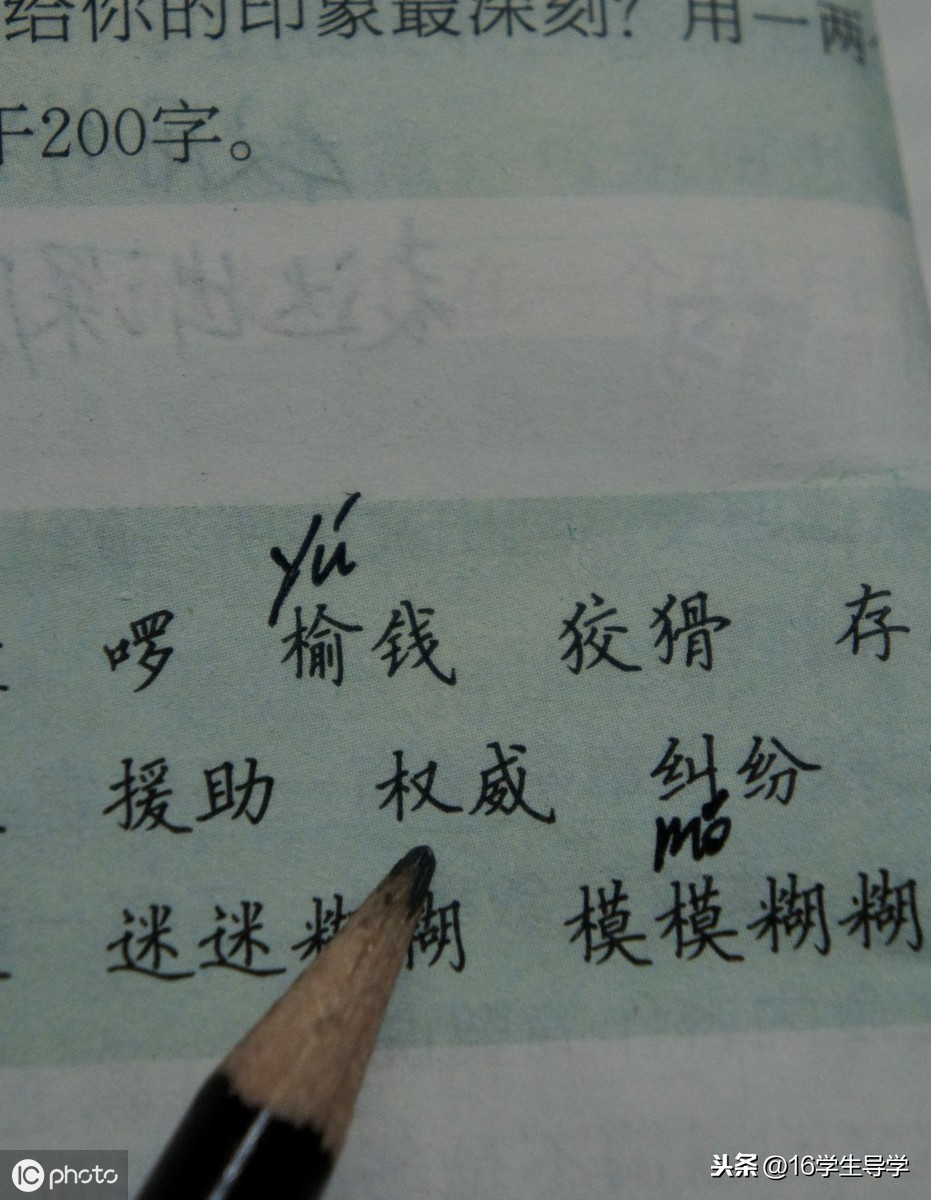 给你的印象最深刻？用一两
于200字。
yú
啰 榆钱 狡猾 存
援助 权威 纠纷
mó
迷迷糊糊 模模糊糊
iC photo
头条 @16学生导学